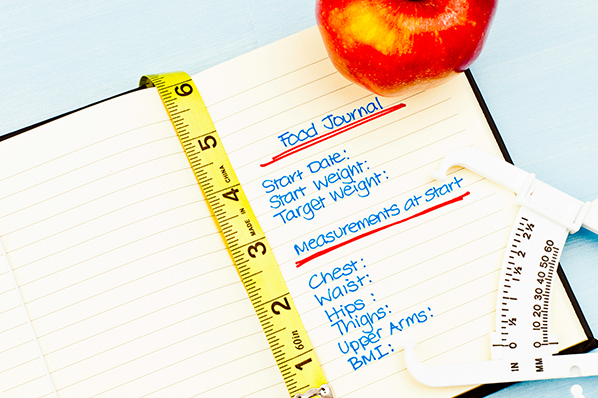 Food Journal
Start Date:
Start Weight:
Target Weight:
Measurements at Start
Chest:
Waist:
Hips :
Thighs:
Upper Arms:
BMI:
6
5
4
MADE IN CHINA
3
2
60in
1
2½
2
1½
1
½
0
IN
60
50
40
30
20
10
0
MM